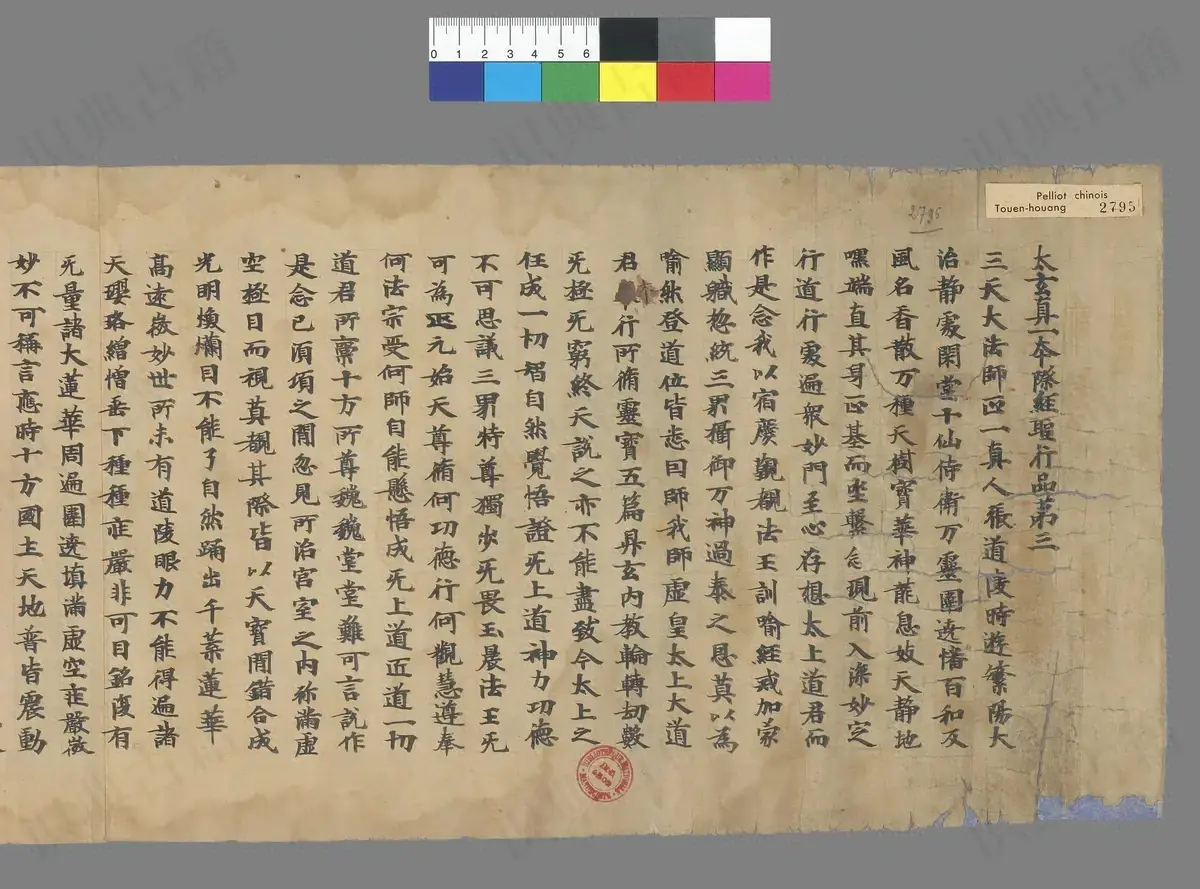 0 1 2 3 4 5 6
Pelliot chinois
Touen-houang 2795
2795
太玄真一本際經聖行品第三
三天大法師正一真人張道陵時遊繁陽大
治靜處閑堂千仙侍衛万靈圍遶憣百和及
風名香散万種天樹寶華神龍息妓天靜地
嘿端直其身正基而坐繫念現前入深妙定
行道行處遍衆妙門至心存想太上道君而
作是念我以宿慶觀覩法王訓喻經戒加蒙
顯職惣統三界攝御万神過泰之恩莫以為
喻然登道位皆悉曰師我師虛皇太上大道
君行所脩靈寶五篇昇玄內教輪轉劫數
无極无窮終天說之亦不能盡致今太上之
任成一切智自然覺悟證无上道神力功德
不可思議三界特尊獨步无畏玉晨法王无
可為匹元始天尊脩何功德行何觀慧遵奉
何法宗受何師自能懸悟成无上道匠道一切
道君所稟十方所尊巍巍堂堂難可言說作
是念已須項之閒忽見所治宮室之內弥滿虛
空極目而視莫覩其際皆以天寶閒錯合成
光明煥爛目不能了自然踊出千葉蓮華
高遠嶶妙世所未有道陵眼力不能得遍諸
天瓔珞繒憣垂下種種莊嚴非可目銘復有
无量諸大蓮華周遍圍遶填滿虛空莊嚴微
妙不可稱言應時十方國土天地普皆震動